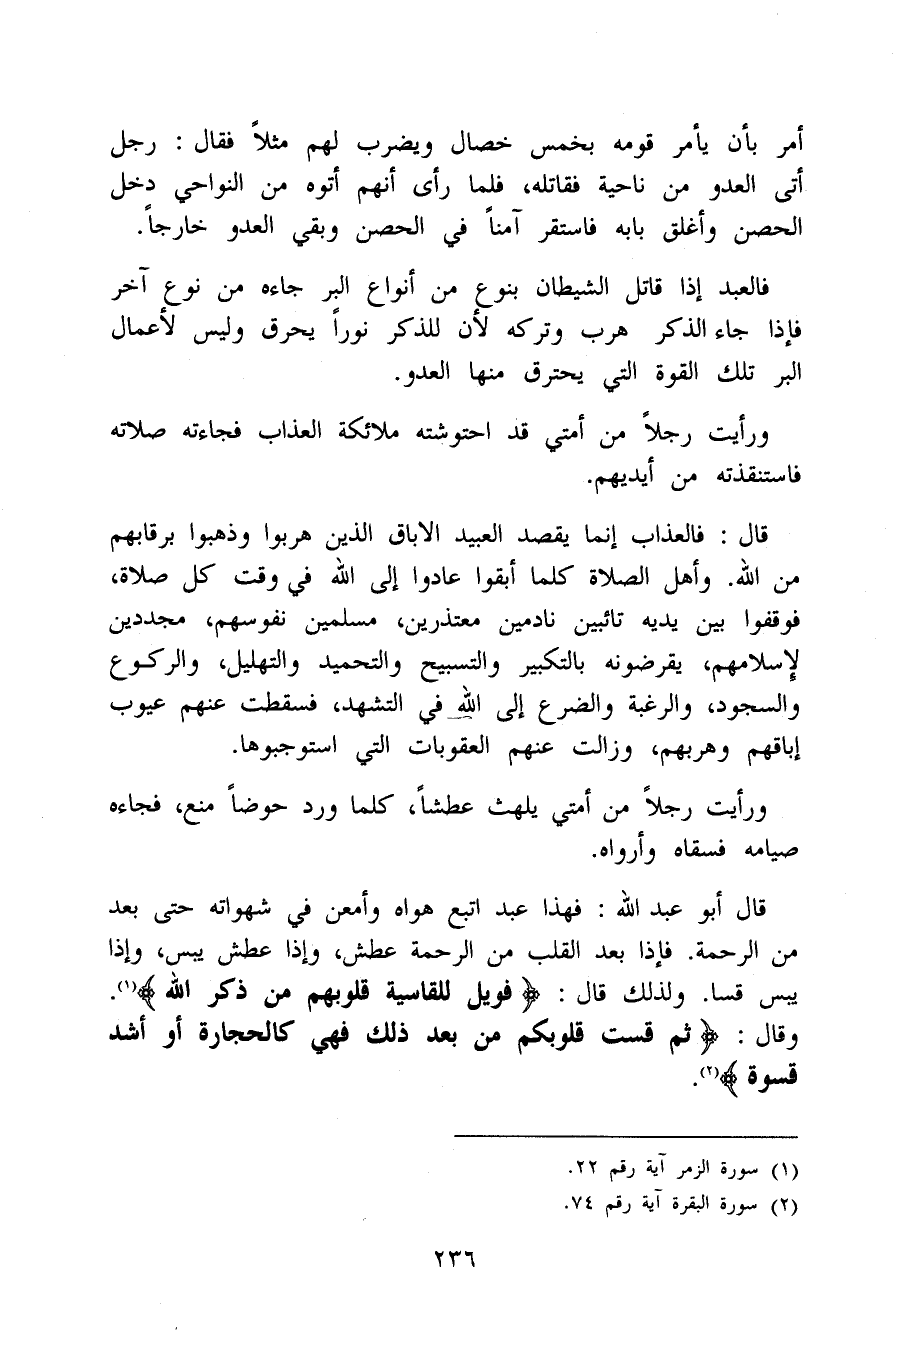 أمر بأن يأمر قومه بخمس خصال ويضرب لهم مثلاً فقال : رجل
أتى العدو من ناحية فقاتله، فلما رأى أنهم أتوه من النواحي دخل
الحصن وأغلق بابه فاستقر آمناً في الحصن وبقي العدو خارجاً.
فالعبد إذا قاتل الشيطان بنوع من أنواع البر جاءه من نوع آخر
فإذا جاء الذكر هرب وتركه لأن للذكر نوراً يحرق وليس لأعمال
البر تلك القوة التي يحترق منها العدو.
ورأيت رجلاً من أمتي قد احتوشته ملائكة العذاب فجاءته صلاته
فاستنقذته من أيديهم.
قال : فالعذاب إنما يقصد العبيد الاباق الذين هربوا وذهبوا برقابهم
من الله. وأهل الصلاة كلما أبقوا عادوا إلى الله في وقت كل صلاة،
فوقفوا بين يديه تائبين نادمين معتذرين، مسلمين نفوسهم، مجددين
لإسلامهم، يقرضونه بالتكبير والتسبيح والتحميد والتهليل، والركوع
والسجود، والرغبة والضرع إلى الله في التشهد، فسقطت عنهم عيوب
إباقهم وهربهم، وزالت عنهم العقوبات التي استوجبوها.
ورأيت رجلاً من أمتي يلهث عطشاً، كلما ورد حوضاً منع، فجاءه
صيامه فسقاه وأرواه.
قال أبو عبد الله : فهذا عبد اتبع هواه وأمعن في شهواته حتى بعد
من الرحمة. فإذا بعد القلب من الرحمة عطش، وإذا عطش يبس، وإذا
يبس قسا. ولذلك قال : ﴿ فويل للقاسية قلوبهم من ذكر الله ﴾(١).
وقال : ﴿ ثم قست قلوبكم من بعد ذلك فهي كالحجارة أو أشد
قسوة ﴾(٢).
(١) سورة الزمر آية رقم ٢٢.
(٢) سورة البقرة آية رقم ٧٤.
٢٣٦